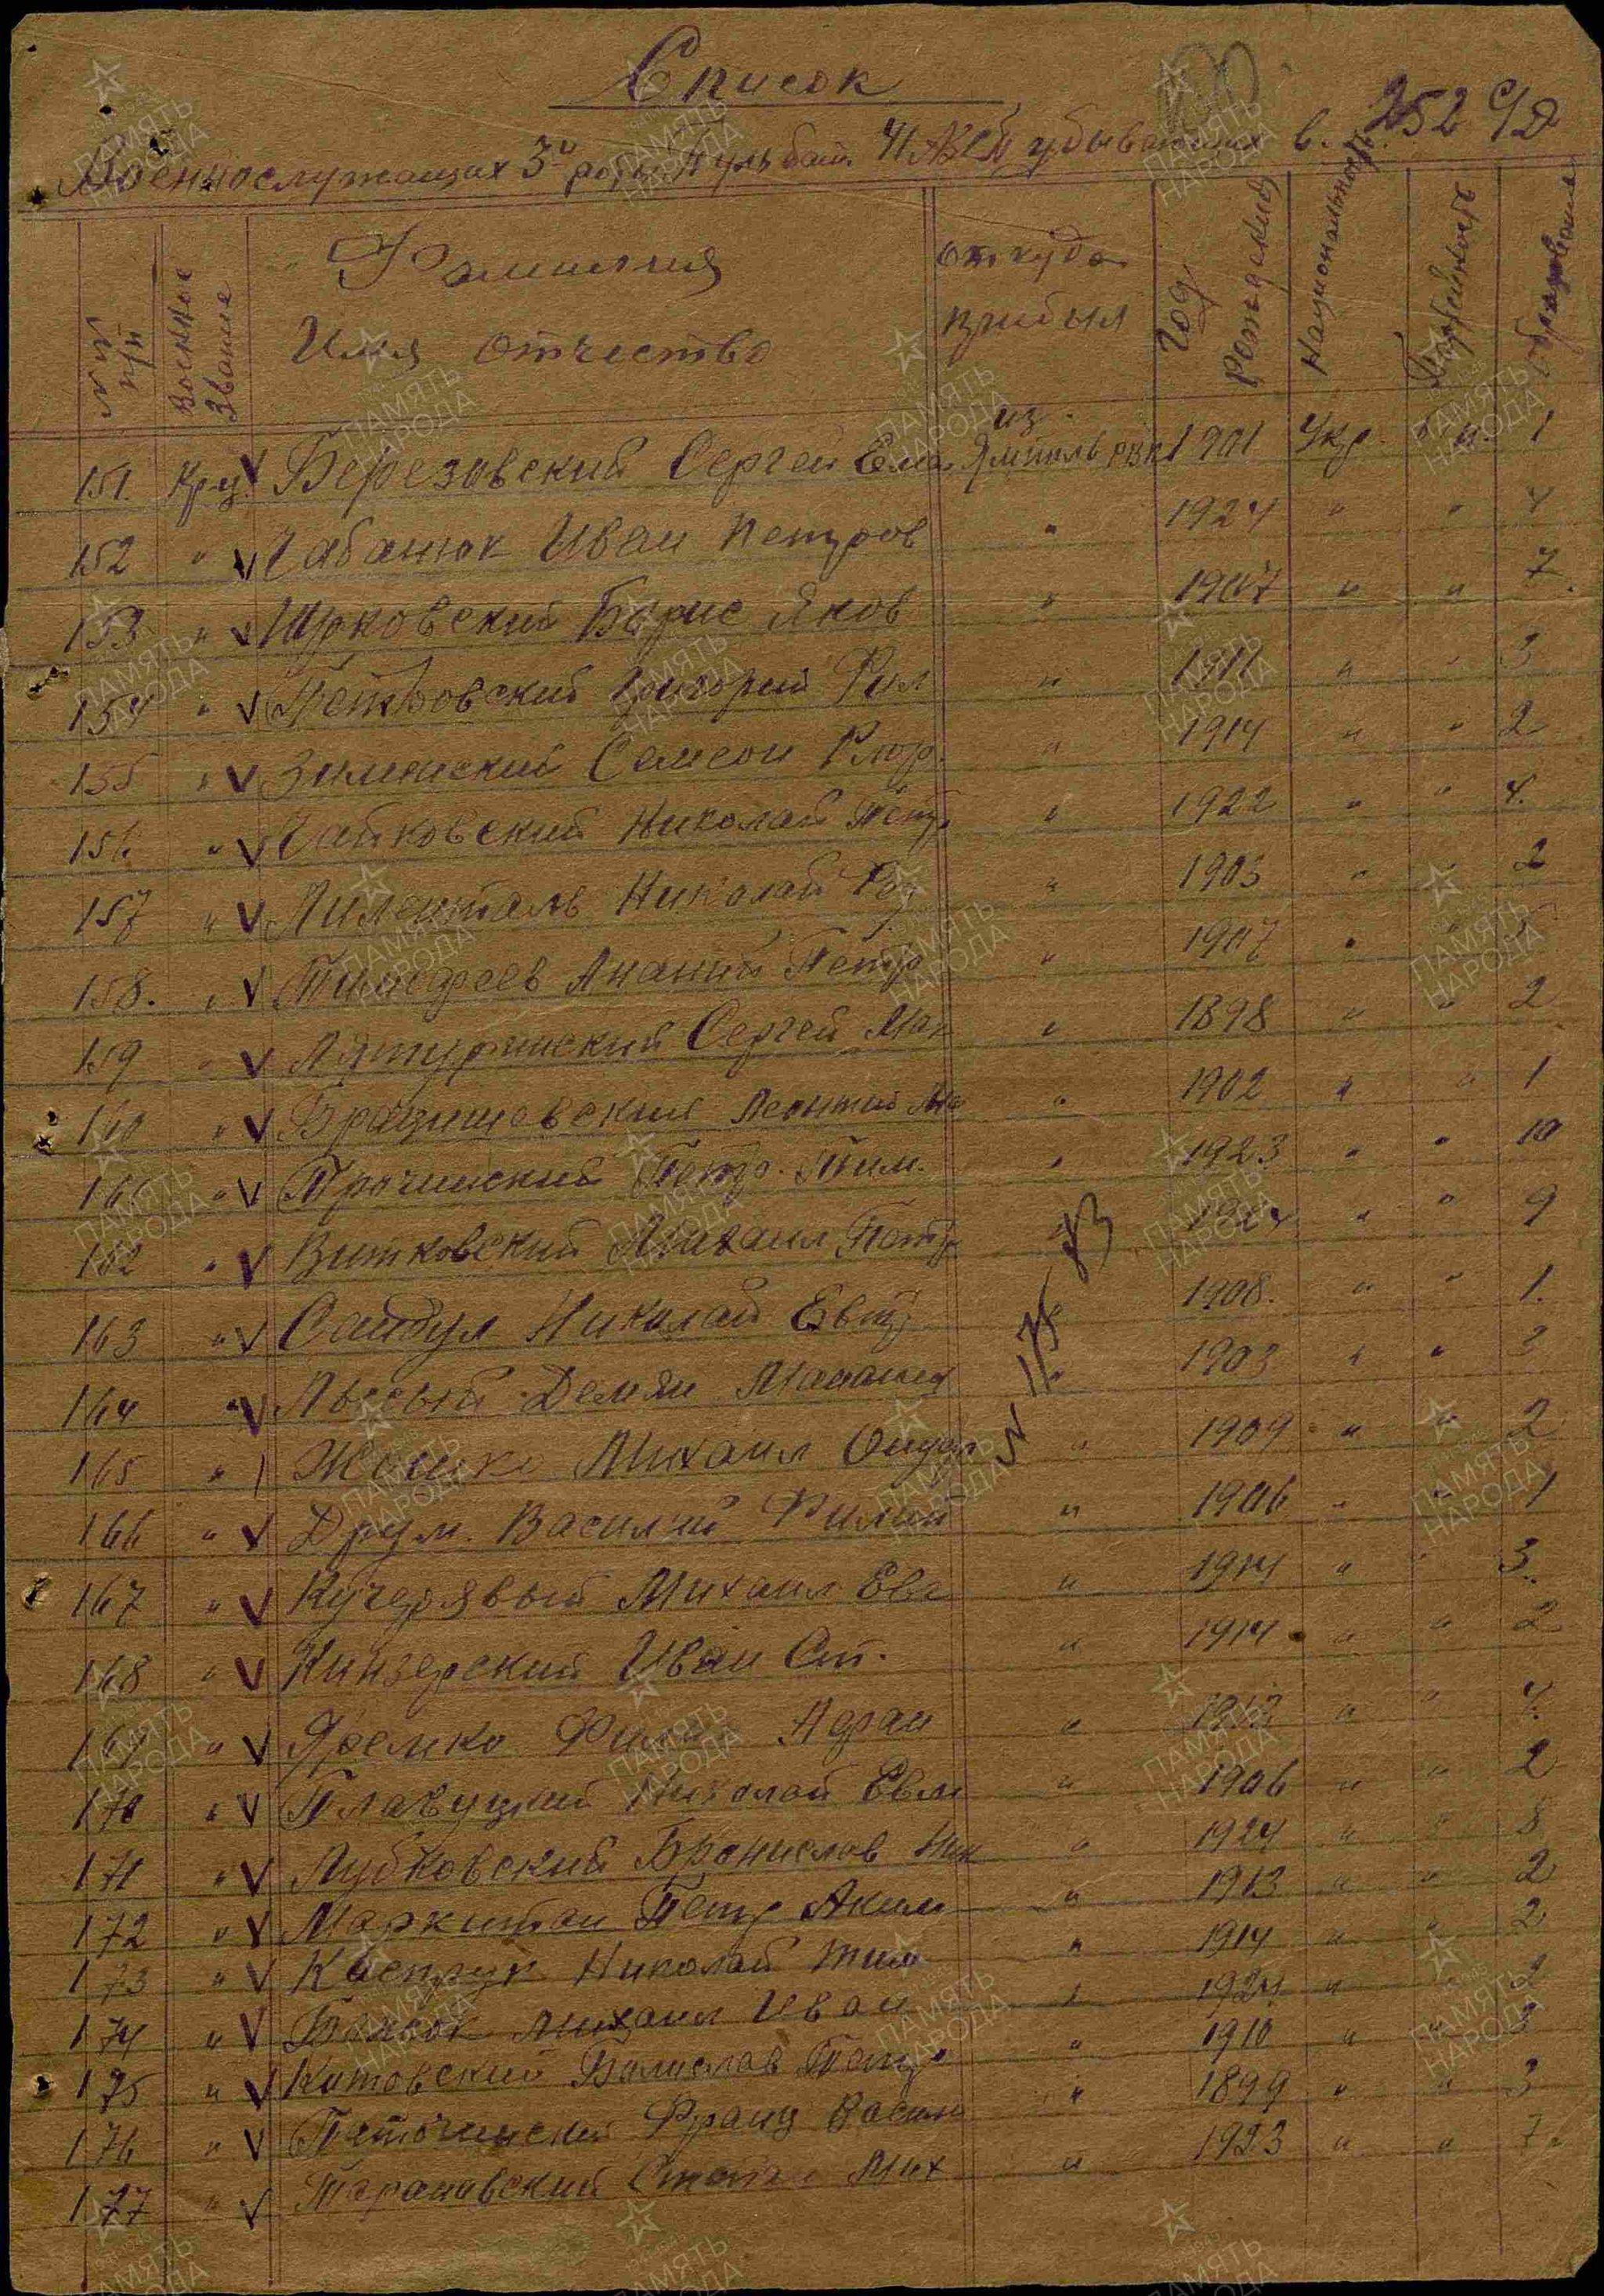 Список
Военнослужащих 3й роты Пульбат. 41 АЗСП убывающих в. 252 С/Д
№№ п/п Военное Звание Фамилия Имя Отчество откуда прибыл Год Рождения Национальность Партейность Образование
151. Кр-ц. Березовский Сергей Ем. из Ямполь РВК 1901 Укр. б/п. 1
152 " Чабанюк Иван Петров " 1924 " " 4
153 " Шурковский Борис Яков " 1907 " " 7
154 " Петровский Григорий Фил " 1911 " " 3
155 " Зиминский Самсон " 1914 " " 2
156 " Чайковский Николай Петр. " 1922 " " 4.
157 " Лиленталь Николай " 1903 " " 2
158. " Ананий Петр " 1907 " "
159 " Лятуринский Сергей Мак " 1898 " " 2
160 " Брацишевский Леонтий " 1902 " " 1
161 " Трочинский Петр. Тим. " 1923 " " 10
162 " Витковский Михаил Петр " " " 9
163 " Сандул Николай Евт " 1908. " " 1.
164 " Лысый Демян " 1903 " " 3
165 " Михаил " 1909 " " 2
166 " Друм. Василий Филип " 1906 " " 1
167 " Кучерявый Михаил Евг " 1914 " " 3.
168 " Кинзерский Иван Ст. " 1914 " " 2
169 " Яремко Адам " 1913 " "
170 " Плавуцкий Николай Евм " 1906 " " 2
171 " Лубковский Бронислав Ник " 1924 " " 8
172 " Маркитан Петр Аким " 1913 " " 2
173 " Каспрук Николай Тим " 1914 " " 2
174 " Михаил Иван " 1924 " " 2
175 " Китовский Болислав Петр " 1910 " " 3
176 " Франц Васил " 1899 " " 3
177 " Тарановский Степан Мих " 1923 " " 7.
ПАМЯТЬ НАРОДА